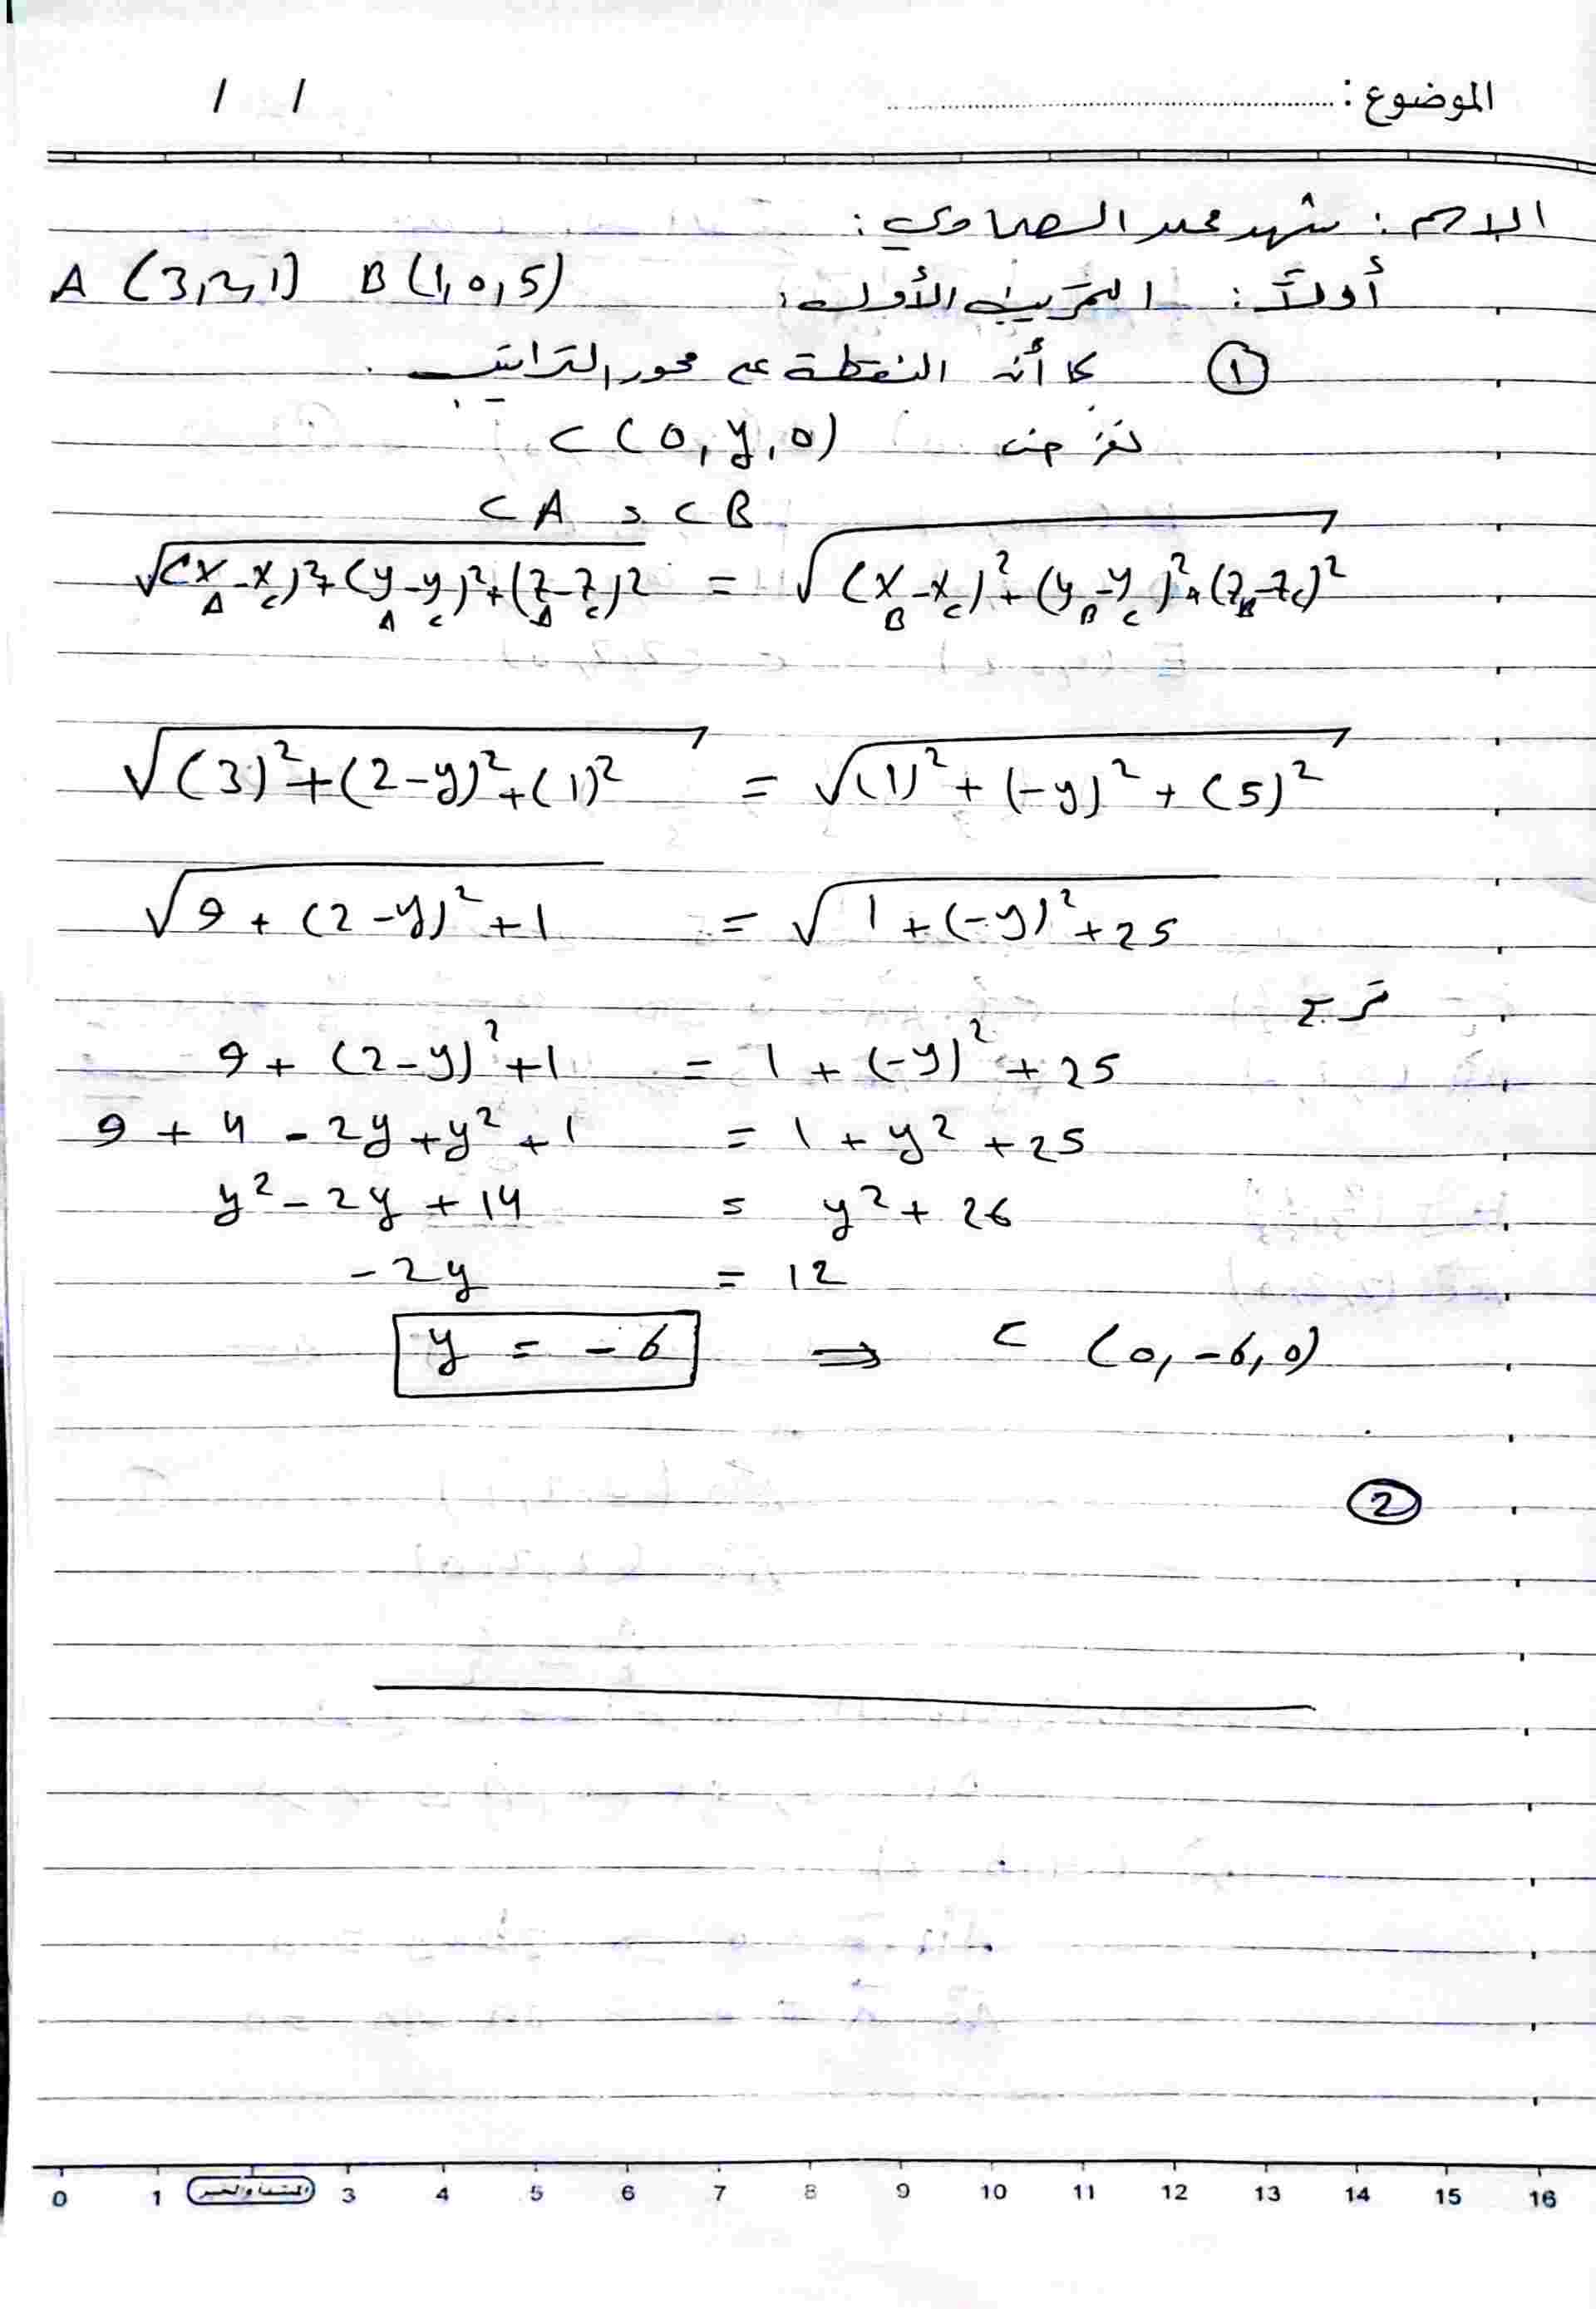 الموضوع :
/ /
الاسم : شهد محمد الصماوي :
أولاً : التمرين الأول : A (3,2,1) B (1,0,5)
① بما أن النقطة على محور التراتيب .
نفرض C (0, y, 0)
CA = CB
√(x_A - x_C)² + (y_A - y_C)² + (z_A - z_C)² = √(x_B - x_C)² + (y_B - y_C)² + (z_B - z_C)²
√(3)² + (2-y)² + (1)² = √(1)² + (-y)² + (5)²
√9 + (2-y)² + 1 = √1 + (-y)² + 25
نربع
9 + (2-y)² + 1 = 1 + (-y)² + 25
9 + 4 - 2y + y² + 1 = 1 + y² + 25
y² - 2y + 14 = y² + 26
-2y = 12
y = -6 ⇒ C (0, -6, 0)
②
0 1 3 4 5 6 7 8 9 10 11 12 13 14 15 16